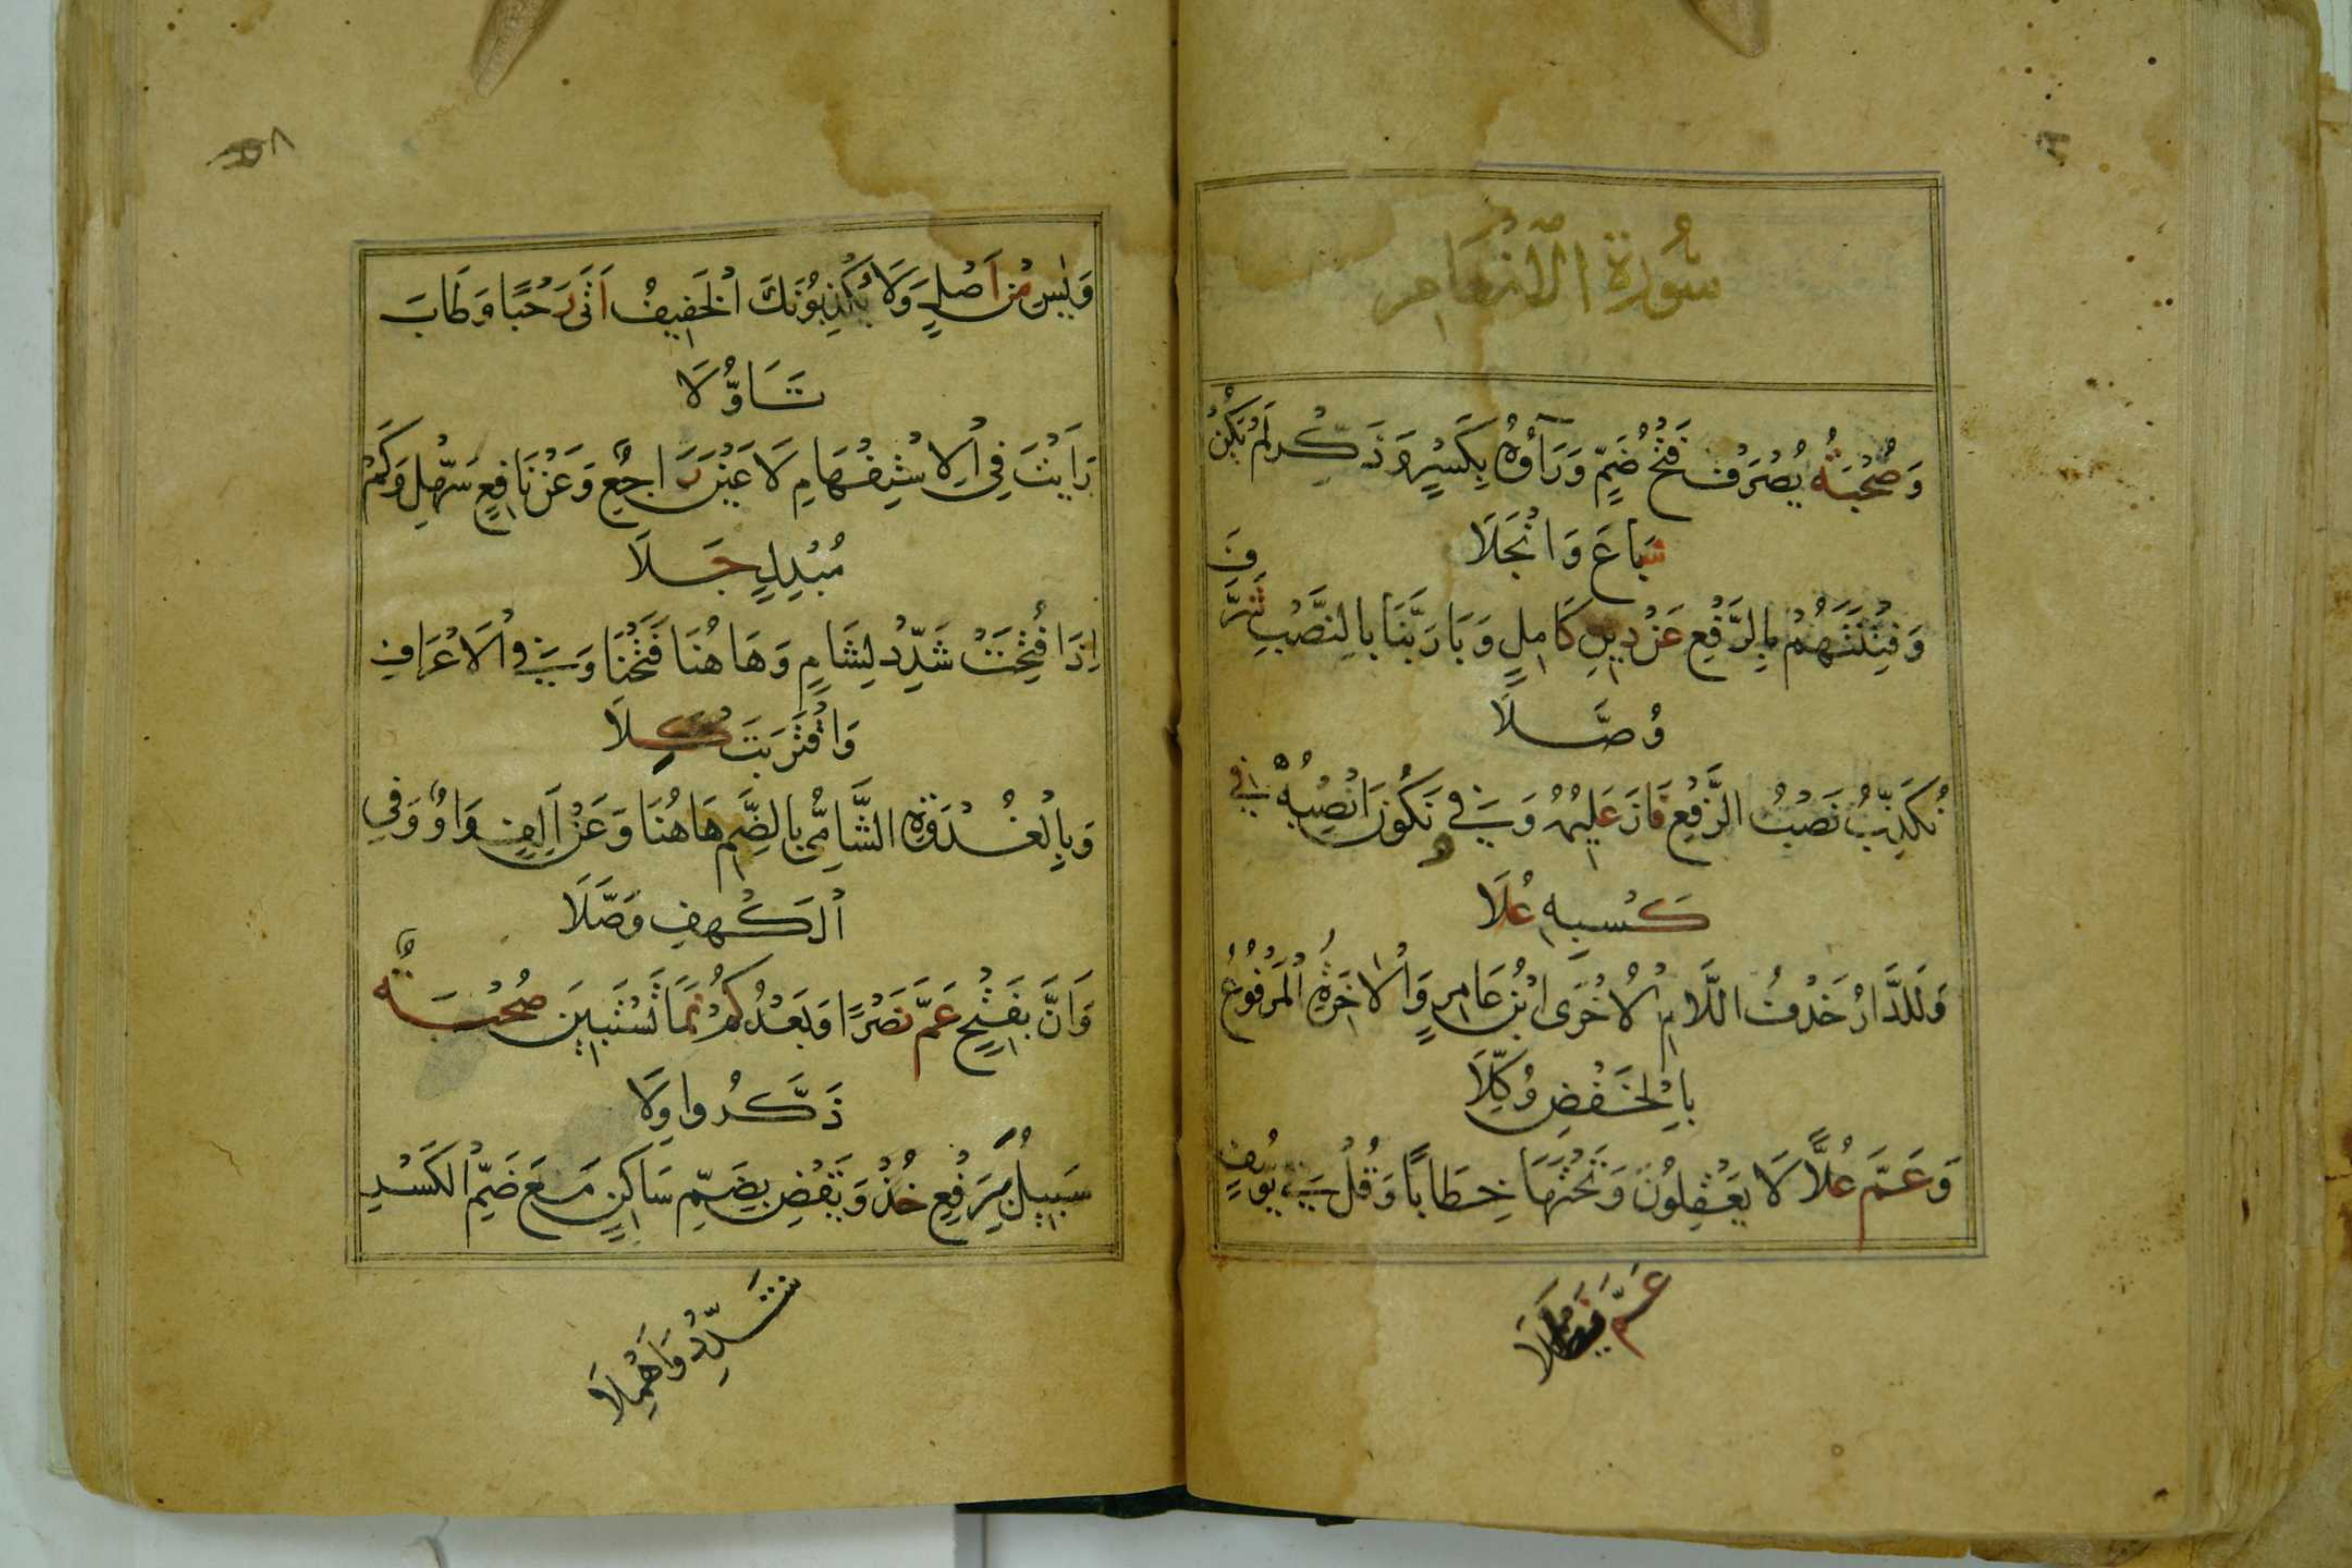 سُورَةُ الْاَنْعَامِ
وَصُحْبَةُ يُصْرَفْ فَتْحُ ضَمٍّ وَرَآؤُهُ بِكَسْرٍ وَذَكِّرْ لَمْ يَكُنْ
شَاعَ وَانْجَلَا
وَفِتْنَتُهُمْ بِالرَّفْعِ عَنْ دِينِ كَامِلٍ وَبَا رَبَّنَا بِالنَّصْبِ شَرَّفَ
وُصَّلَا
نُكَذِّبُ نَصْبُ الرَّفْعِ فَازَ عَلِيمُهُ وَفِي وَنَكُونَ انْصِبْهُ فِي
كَسْبِهِ عُلَا
وَلَلدَّارُ حَذْفُ اللَّامِ الْاُخْرَى ابْنُ عَامِرٍ وَالْاٰخِرَةُ الْمَرْفُوعُ
بِالْخَفْضِ وُكِّلَا
وَعَمَّ عُلًا لَا يَعْقِلُونَ وَتَحْتَهَا خِطَابًا وَقُلْ فِي يُوسُفٍ
عَمَّ نَيْطَلَا
٨
وَيٰسِ مِنْ اَصْلٍ وَلَا يُكْذِبُونَكَ الْخَفِيفُ اَتَى رَحْبًا وَطَابَ
تَاَوُّلَا
رَاَيْتَ فِي الْاِسْتِفْهَامِ لَا عَيْنَ رَاجِعٌ وَعَنْ نَافِعٍ سَهِّلْ وَكَمْ
مُبْدِلٍ جَلَا
اِذَا فُتِحَتْ شَدِّدْ لِشَامٍ وَهَاهُنَا فَتَحْنَا وَفِي الْاَعْرَافِ
وَاقْتَرَبَتْ كِلَا
وَبِالْغُدْوَةِ الشَّامِيُّ بِالضَّمِّ هَاهُنَا وَعَنْ اَلِفٍ وَاوٌ وَفِي
الْكَهْفِ وَصَّلَا
وَاَنَّ بِفَتْحٍ عَمَّ نَصْرًا وَبَعْدُ كَمْ نَمَا تَسْتَبِينَ صُحْبَةٌ
ذَكَّرُوا وِلَا
سَبِيلَ بِرَفْعٍ خُذْ وَيَقْضِ بِضَمِّ سَاكِنٍ مَعَ ضَمِّ الْكَسْرِ
شَدِّدْ وَاَهْمِلَا